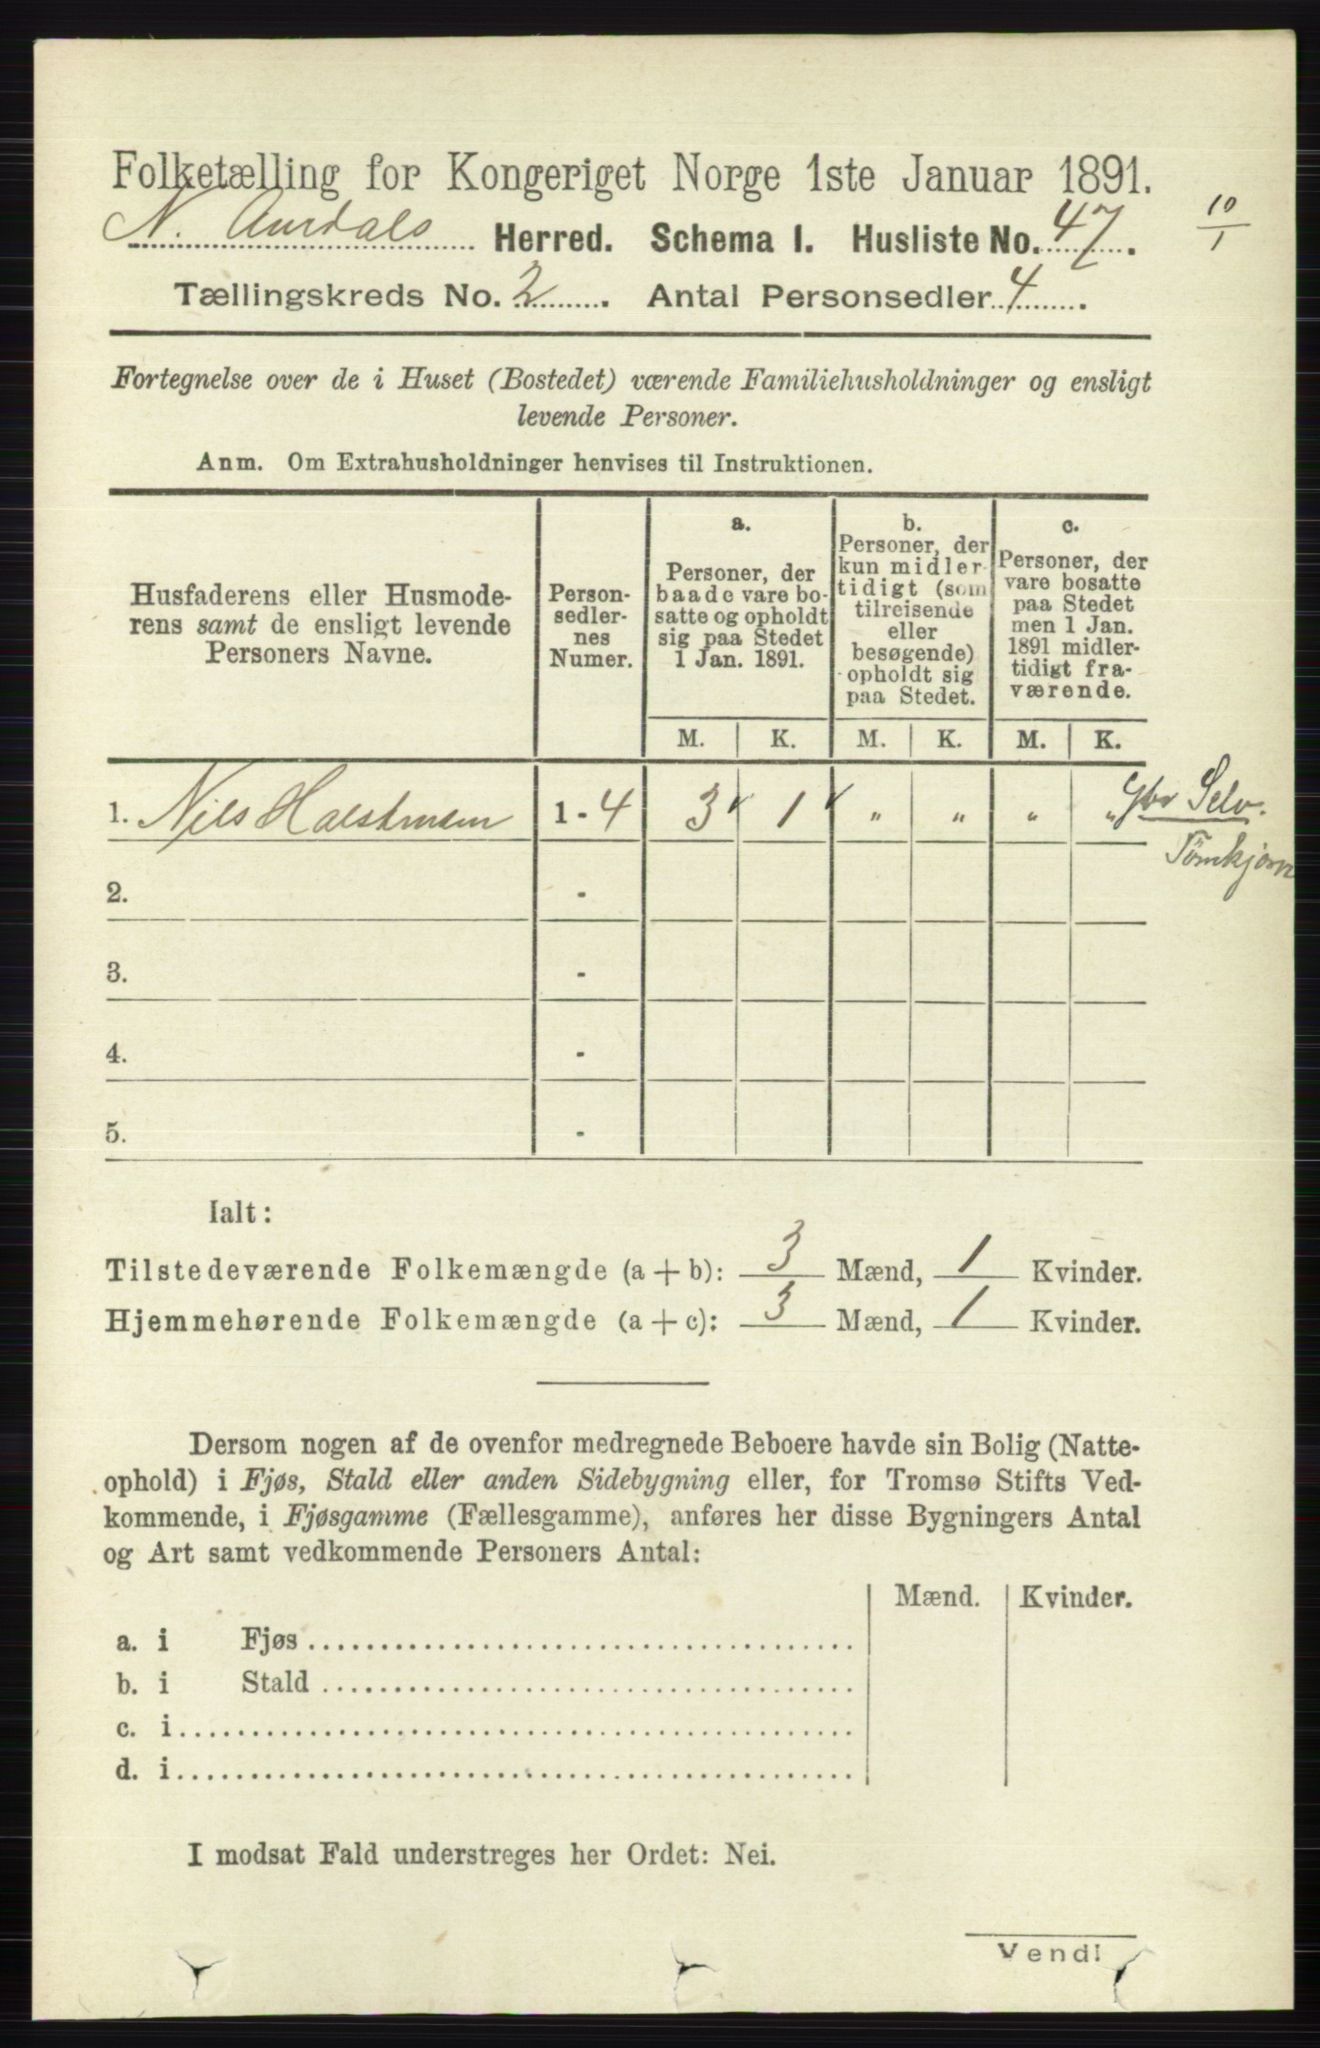 Folketælling for Kongeriget Norge 1ste Januar 1891.
N. Aurdals Herred. Schema I. Husliste No. 47.
10/1
Tællingskreds No. 2. Antal Personsedler 4.
Fortegnelse over de i Huset (Bostedet) værende Familiehusholdninger og ensligt
levende Personer.
Anm. Om Extrahusholdninger henvises til Instruktionen.
Husfaderens eller Husmode-
rens samt de ensligt levende
Personers Navne.
Person-
sedler-
nes
Numer.
a.
Personer, der
baade vare bo-
satte og opholdt
sig paa Stedet
1 Jan. 1891.
b.
Personer, der
kun midler-
tidigt (som
tilreisende
eller
besøgende)
opholdt sig
paa Stedet.
c.
Personer, der
vare bosatte
paa Stedet
men 1 Jan.
1891 midler-
tidigt fra-
værende.
M. K. M. K. M. K.
1. Nils 1 - 4 3 1 " " " " Gbr Selv.
2. -
3. -
4. -
5. -
Ialt:
Tilstedeværende Folkemængde (a + b): 3 Mænd, 1 Kvinder.
Hjemmehørende Folkemængde (a + c): 3 Mænd, 1 Kvinder.
Dersom nogen af de ovenfor medregnede Beboere havde sin Bolig (Natte-
ophold) i Fjøs, Stald eller anden Sidebygning eller, for Tromsø Stifts Ved-
kommende, i Fjøsgamme (Fællesgamme), anføres her disse Bygningers Antal
og Art samt vedkommende Personers Antal:
Mænd. Kvinder.
a. i Fjøs
b. i Stald
c. i
d. i
I modsat Fald understreges her Ordet: Nei.
Vend!